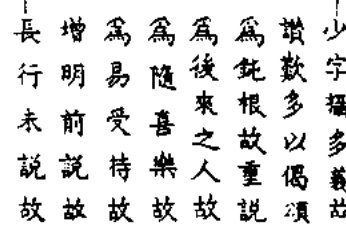 少字攝多義故
讚歎多以偈頌
爲鈍根故重說
爲後來之人故
爲隨喜樂故
爲易受持故
增明前說故
長行未說故